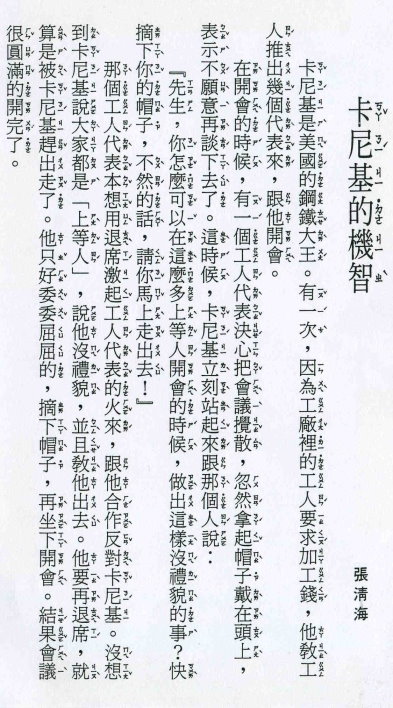 卡尼基的機智
張清海
卡尼基是美國的鋼鐵大王。有一次，因為工廠裡的工人要求加工錢，他教工
人推出幾個代表來，跟他開會。
在開會的時候，有一個工人代表決心把會議攪散，忽然拿起帽子戴在頭上，
表示不願意再談下去了。這時候，卡尼基立刻站起來跟那個人說：
『先生，你怎麼可以在這麼多上等人開會的時候，做出這樣沒禮貌的事？快
摘下你的帽子，不然的話，請你馬上走出去！』
那個工人代表本想用退席激起工人代表的火來，跟他合作反對卡尼基。沒想
到卡尼基說大家都是「上等人」，說他沒禮貌，並且教他出去。他要再退席，就
算是被卡尼基趕出走了。他只好委委屈屈的，摘下帽子，再坐下開會。結果會議
很圓滿的開完了。